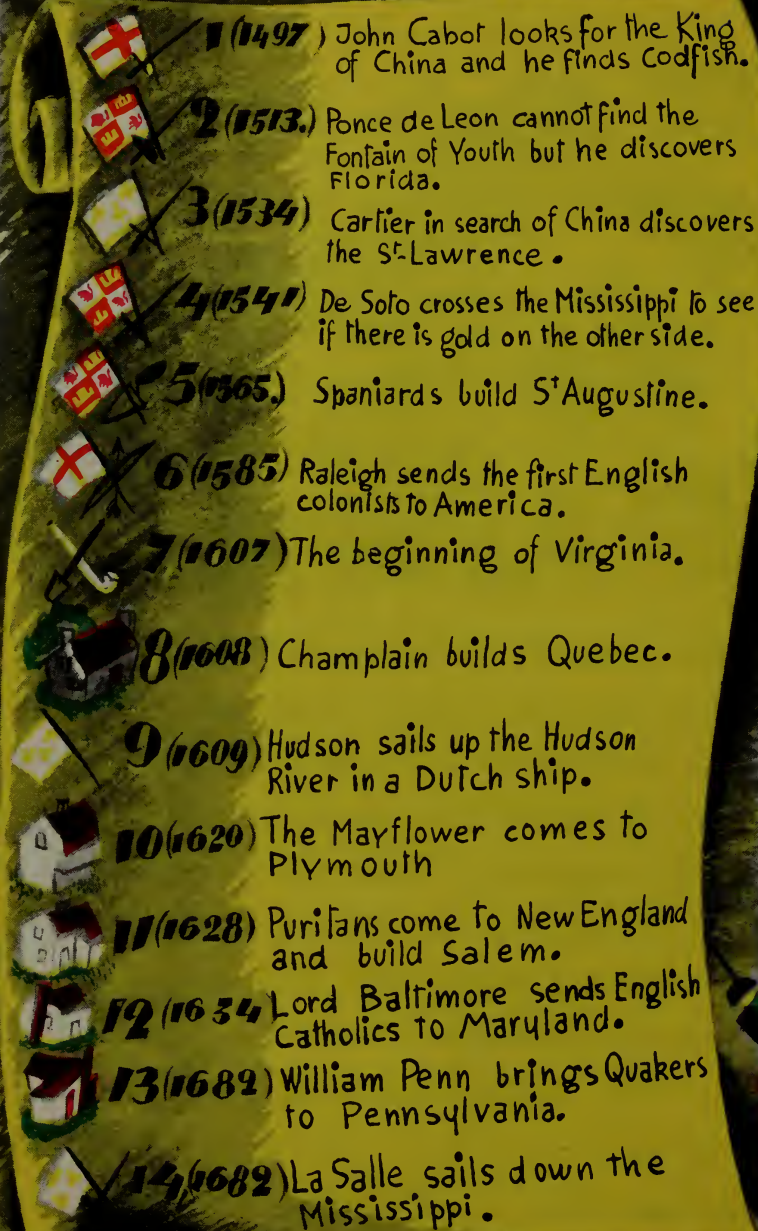 1 (1497) John Cabot looks for the King
of China and he finds Codfish.
2 (1513.) Ponce de Leon cannot find the
Fontain of Youth but he discovers
Florida.
3 (1534) Cartier in search of China discovers
the St-Lawrence.
4 (1541) De Soto crosses the Mississippi to see
if there is gold on the other side.
5 (1565.) Spaniards build St Augustine.
6 (1585) Raleigh sends the first English
colonists to America.
7 (1607) The beginning of Virginia.
8 (1608) Champlain builds Quebec.
9 (1609) Hudson sails up the Hudson
River in a Dutch ship.
10 (1620) The Mayflower comes to
Plymouth
11 (1628) Puritans come to New England
and build Salem.
12 (1634 Lord Baltimore sends English
Catholics to Maryland.
13 (1682) William Penn brings Quakers
to Pennsylvania.
14 (1682) La Salle sails down the
Mississippi.